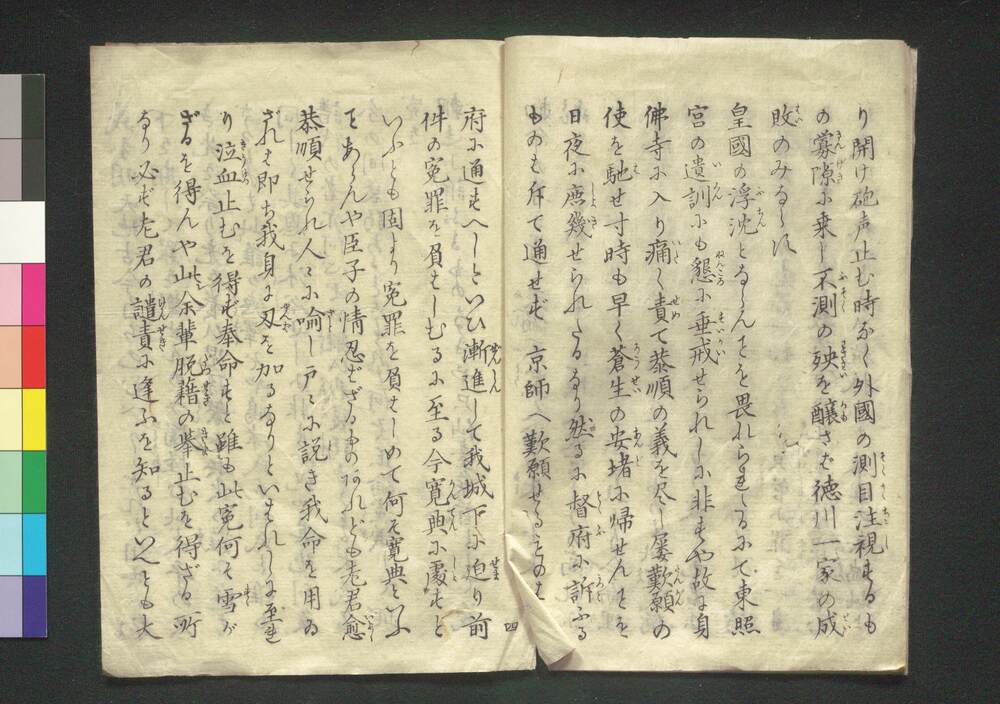 り開け砲声止む時なく外國の測目注視するも
の釁隙に乗し不測の殃を醸さは徳川一家の成
敗のみならす
皇國の浮沈とならんことを畏れられてなり东照
宮の遺訓にも懇に垂戒せられしに非すや故に身
佛寺に入り痛く責て恭順の義を尽し屡歎願の
使を馳せ寸時も早く蒼生の安堵に帰せんことを
日夜に庶幾せられたるなり然るに督府に訴ふる
ものも斥て通せす 京師へ歎願せるものも
四
府に通すへしといひ漸進して我城下に迫り前
件の冤罪を負はしむるに至る今寛典に處すと
いふとも固より冤罪を負はしめて何そ寛典といふ
てあらんや臣子の情忍ひさる事のあれとも老君愈
恭順せられ人々に喻し戸々に説き我命を用ゐ
されは即ち我身に刃を加るなりといはれしに至れ
り泣血止むを得す奉命すと雖も此冤何そ雪か
さるを得んや此余輩脱藉の挙止むを得さる所
なり必す老君の譴責に逢ふを知るといへとも大